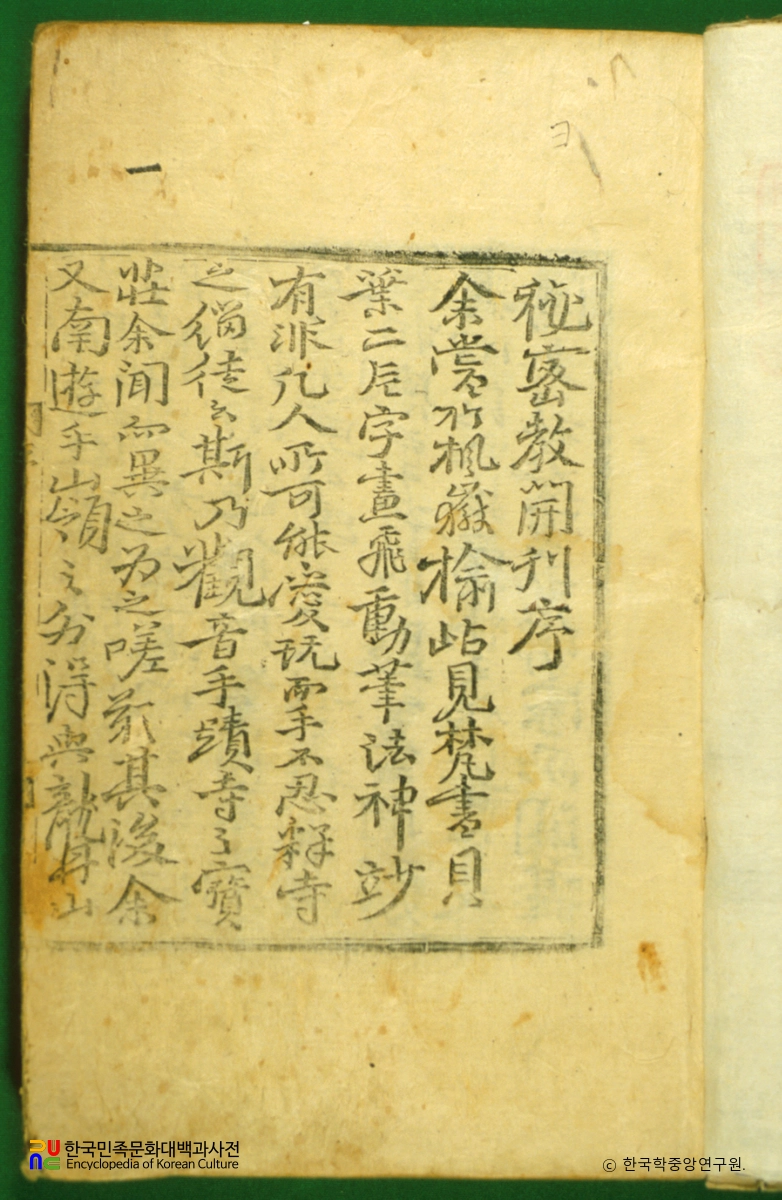 一
秘密敎開刊序
余嘗於楓嶽楡岾見梵書貝
葉二片字畫飛動筆法神妙
有非凡人所可能愛玩而手不忍釋寺
之緇徒云斯乃觀音手蹟寺之寶
莊余聞而異之爲之嗟歎其後余
又南遊乎嶺之外得與龍耳山
한국민족문화대백과사전
Encyclopedia of Korean Culture
ⓒ 한국학중앙연구원.